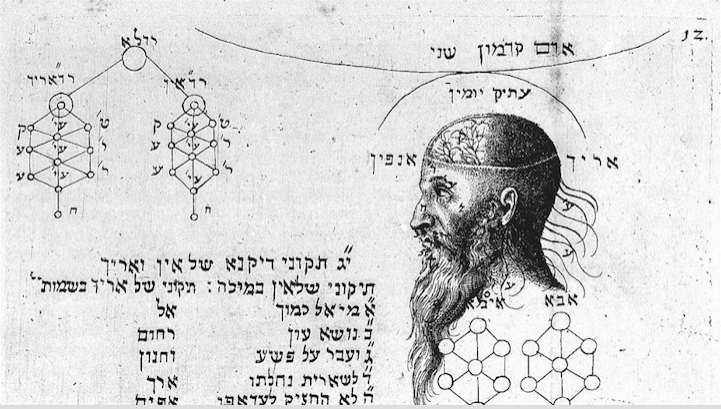 12.
אדם קדמון שני
עתיק יומין
אריך
אנפין
רדלא
רדאריך
ט' ק
ר' ע
ר' ע
ח
ט' ק
ר' ע
ר' ע
ח
אבא
אימא
יג תקוני דיקנא של אין ואריך
תיקוני שלאין במילה: תיקוני של אריך בשמות
א מי אל כמוך אל
ב נושא עון רחום
ג ועבר על פשע וחנון
ד לשארית נחלתו ארך
ה לא החזיק לעד אפו אפים